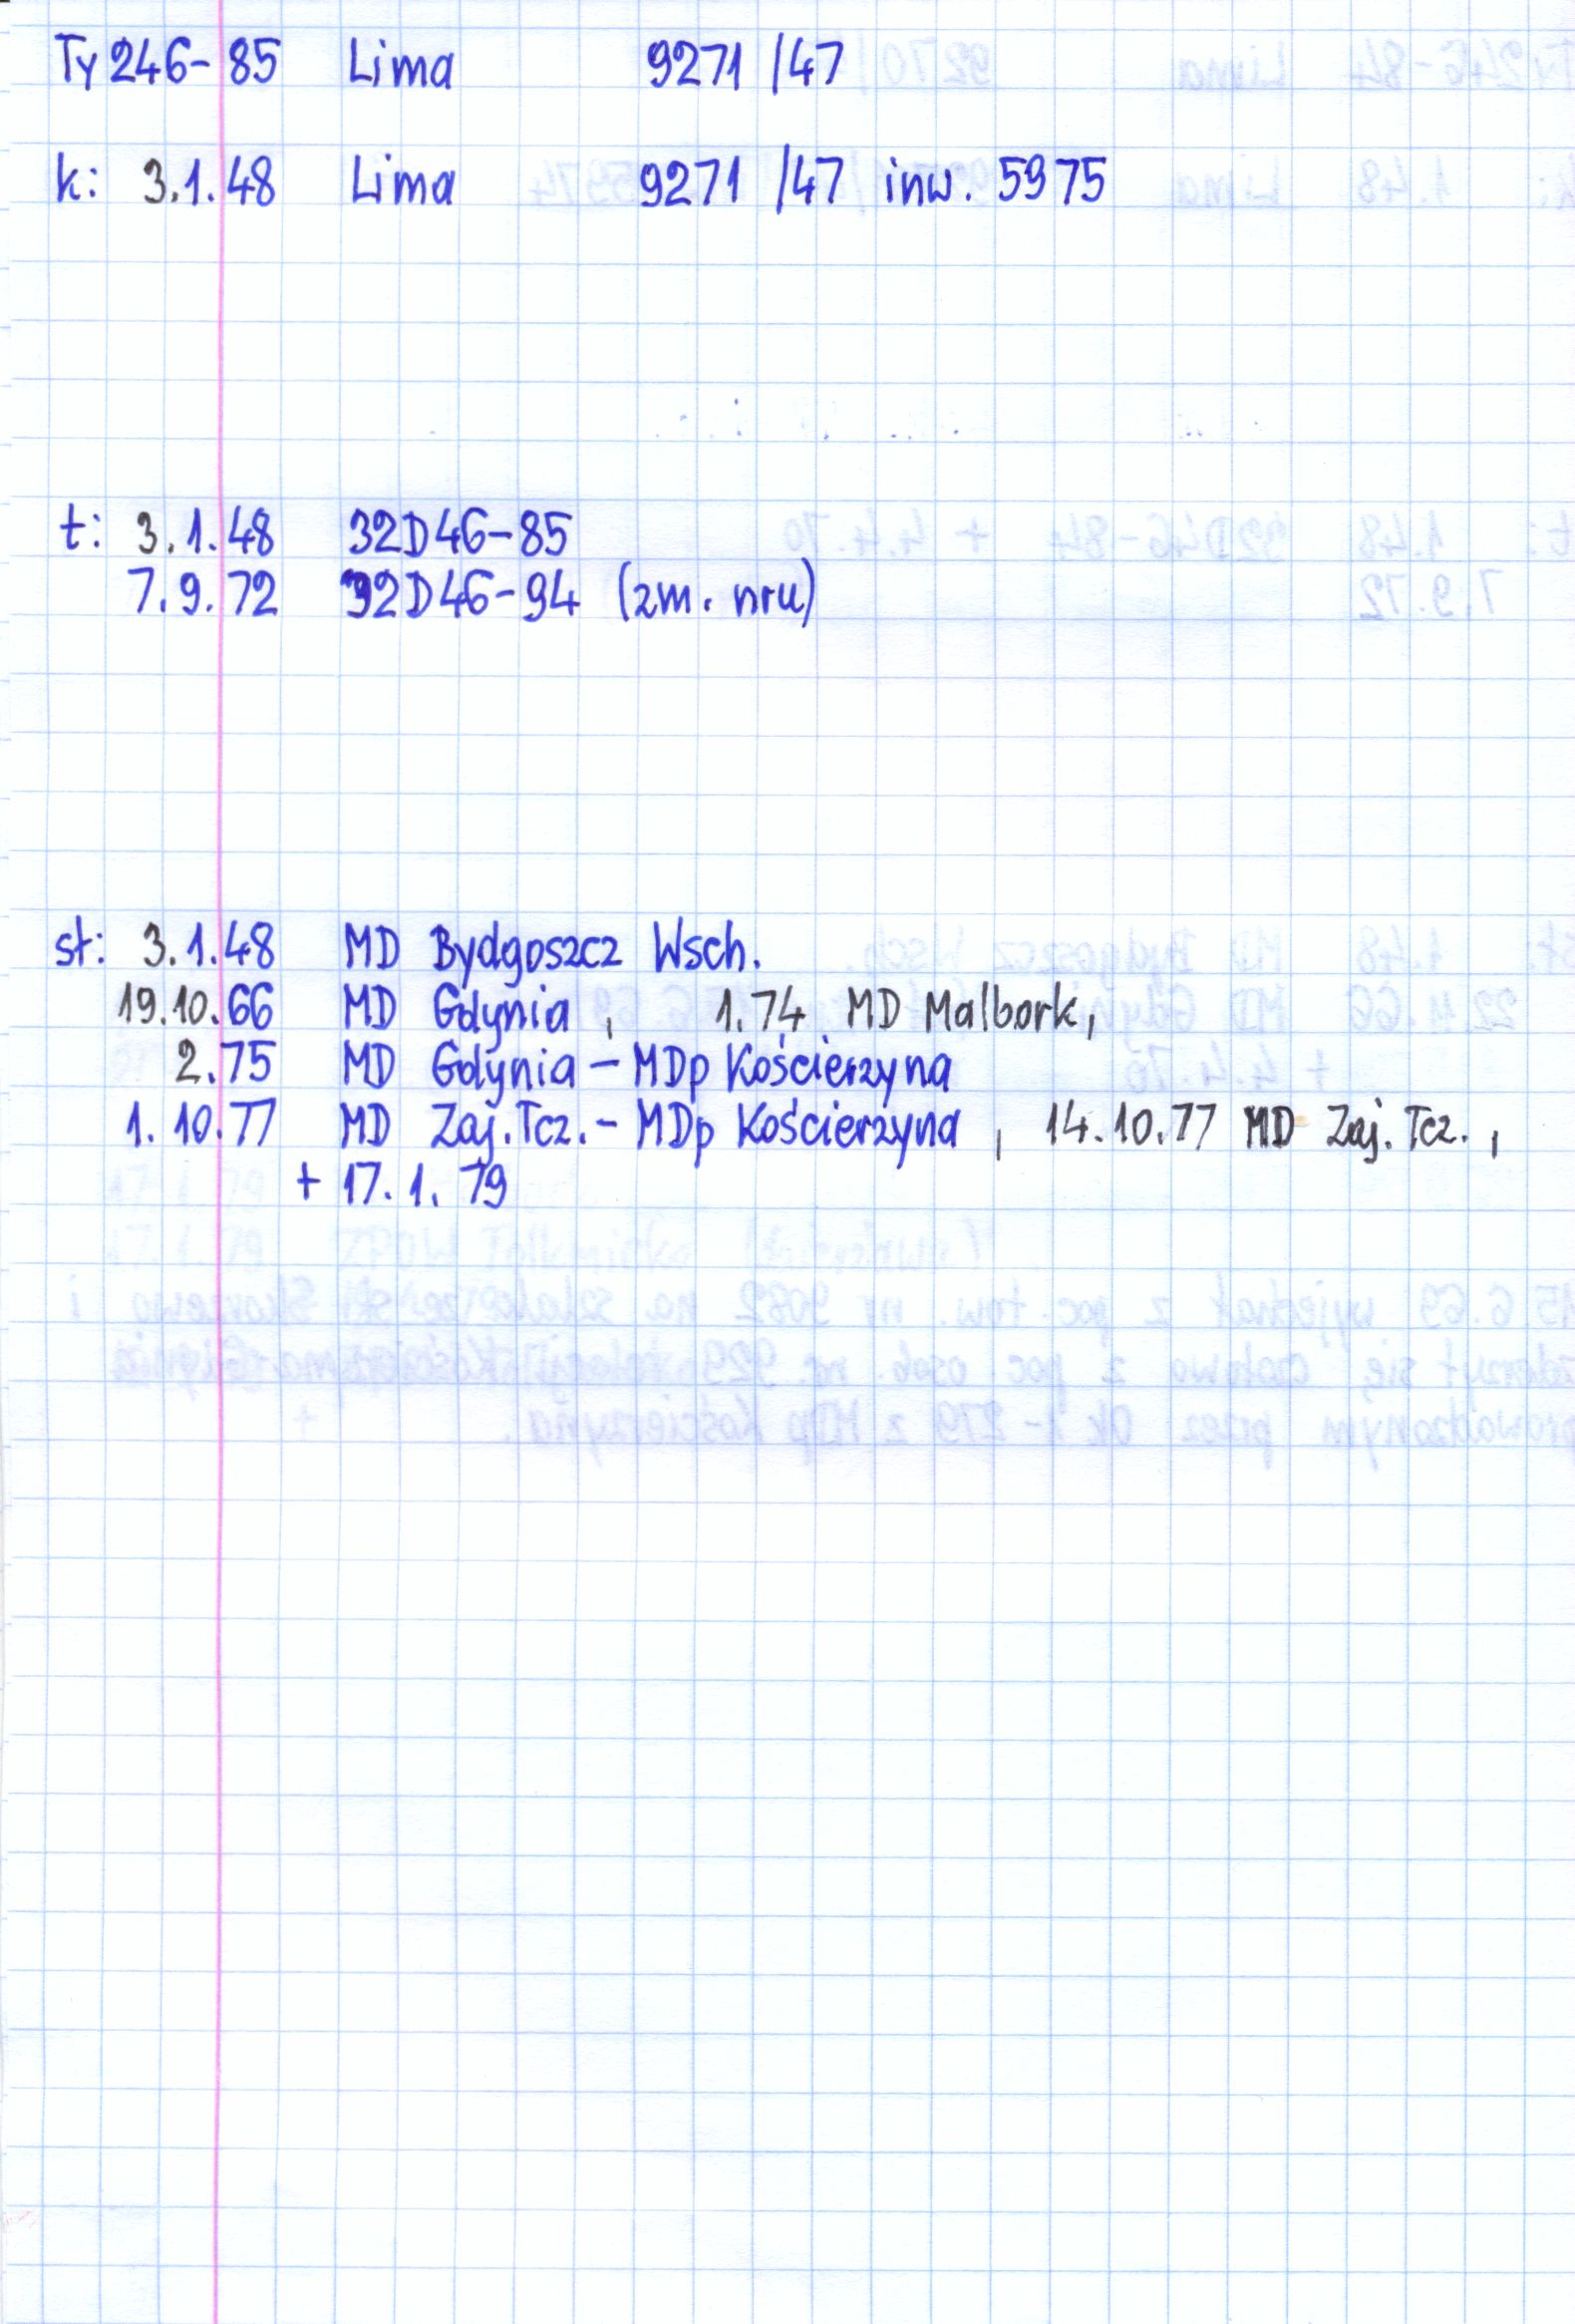 Ty 246-85 Lima 9271 /47
k: 3.1.48 Lima 9271 /47 inw. 5975
t: 3.1.48 32D46-85
7.9.72 32D46-94 (zm. nru)
st: 3.1.48 MD Bydgoszcz Wsch.
19.10.66 MD Gdynia, 1.74 MD Malbork,
2.75 MD Gdynia - MDp Kościerzyna
1.10.77 MD Zaj.Tcz. - MDp Kościerzyna, 14.10.77 MD Zaj. Tcz.,
+ 17.1.79